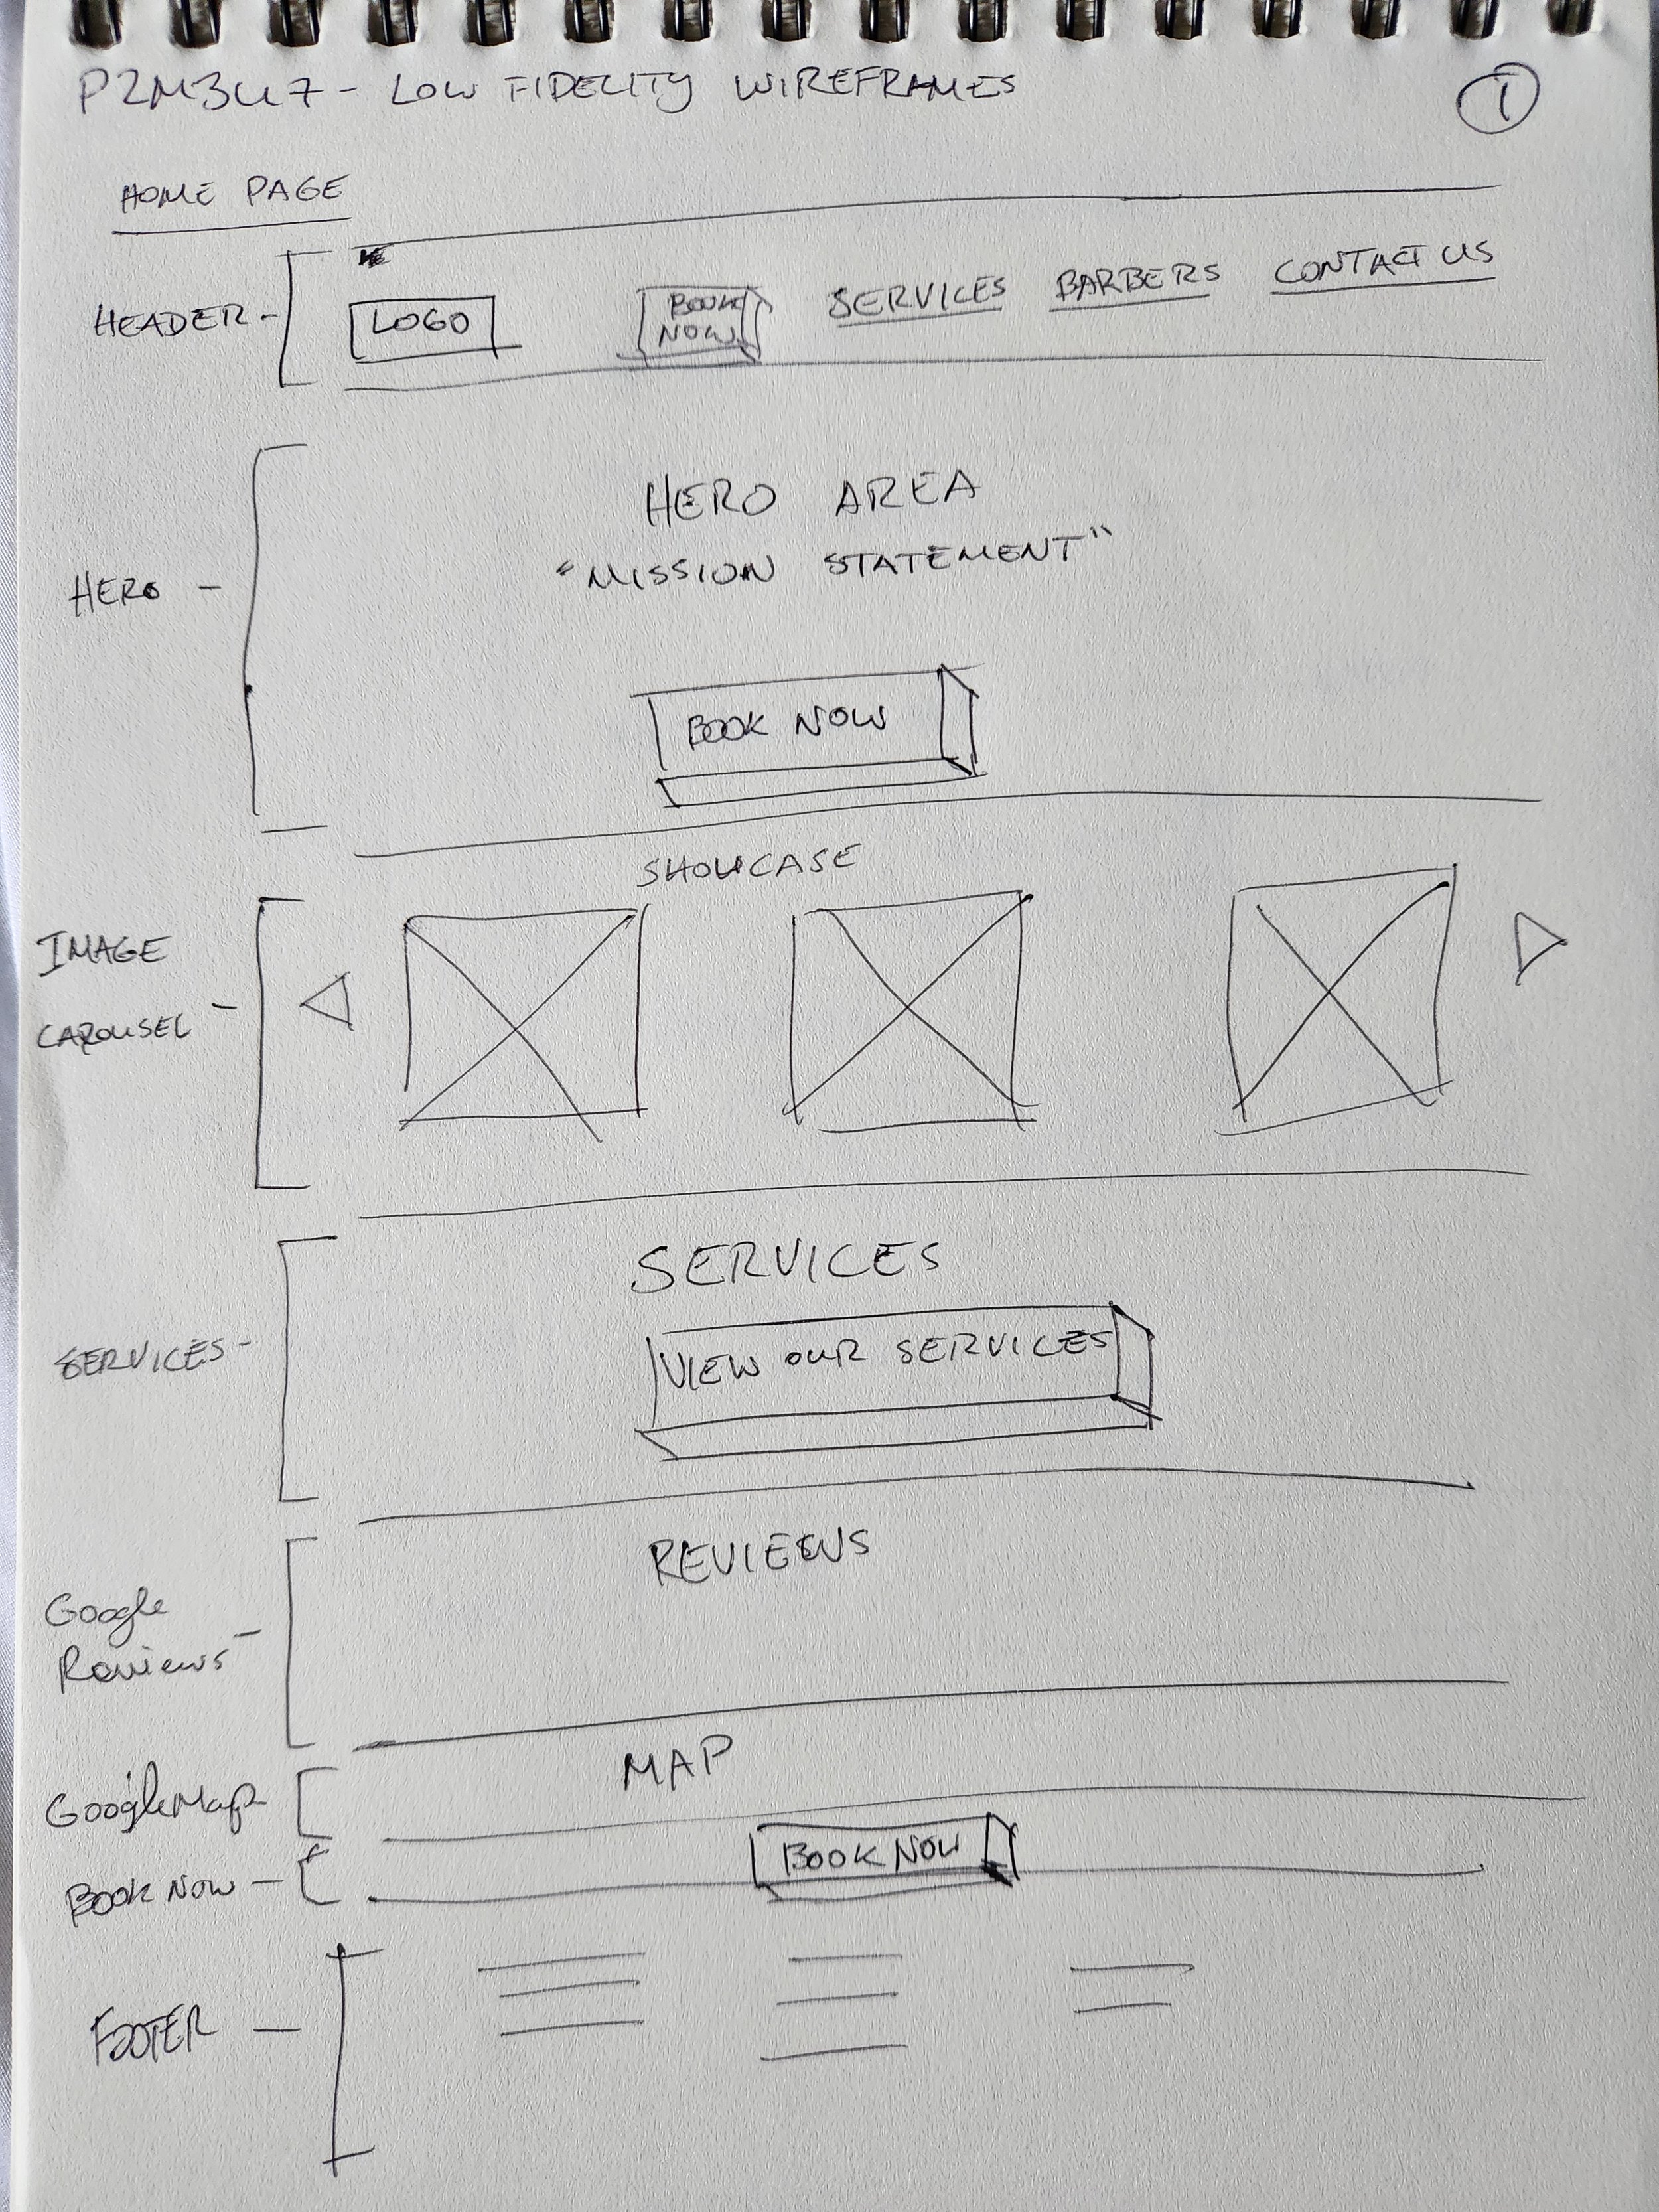 P2M3U7 - LOW FIDELITY WIREFRAMES
1
HOME PAGE
HEADER -
LOGO
BOOK
NOW
SERVICES
BARBERS
CONTACT US
HERO -
HERO AREA
"MISSION STATEMENT"
BOOK NOW
SHOWCASE
IMAGE
CAROUSEL -
SERVICES
SERVICES -
VIEW OUR SERVICES
REVIEWS
Google
Reviews -
MAP
Google Map -
BOOK NOW
BOOK NOW -
FOOTER -